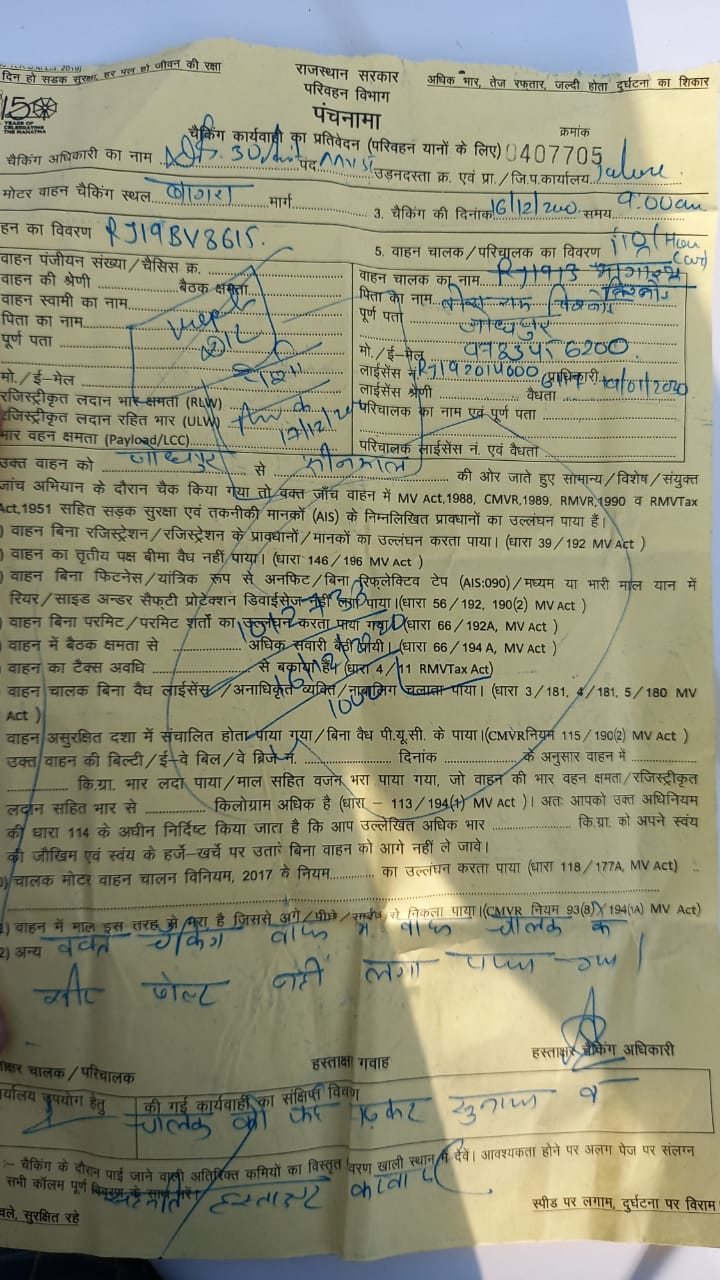 दिन हो सडक सुरक्षा, हर पल हो जीवन की रक्षा
राजस्थान सरकार
परिवहन विभाग
अधिक भार, तेज रफ्तार, जल्दी होता दुर्घटना का शिकार
150
YEARS OF
CELEBRATING
THE MAHATMA
पंचनामा
चैकिंग कार्यवाही का प्रतिवेदन (परिवहन यानों के लिए)
क्रमांक
0407705
चैकिंग अधिकारी का नाम पद उड़नदस्ता क्र. एवं प्रा./जि.प.कार्यालय Jalore
मोटर वाहन चैकिंग स्थल बागरा मार्ग 3. चैकिंग की दिनांक समय 9:00 am
हन का विवरण RJ19BV8615.
5. वाहन चालक/परिचालक का विवरण
वाहन पंजीयन संख्या/चैसिस क्र.
वाहन की श्रेणी बैठक क्षमता
वाहन स्वामी का नाम
पिता का नाम
पूर्ण पता
मो./ई-मेल
रजिस्ट्रीकृत लदान भार क्षमता (RLW)
रजिस्ट्रीकृत लदान रहित भार (ULW)
भार वहन क्षमता (Payload/LCC)
वाहन चालक का नाम
पिता का नाम
पूर्ण पता जोधपुर
मो./ई-मेल
लाईसेंस नं. प्राधिकारी
लाईसेंस श्रेणी वैधता
परिचालक का नाम एवं पूर्ण पता
परिचालक लाईसेंस नं. एवं वैधता
उक्त वाहन को जोधपुर से भीनमाल की ओर जाते हुए सामान्य/विशेष/संयुक्त
जांच अभियान के दौरान चैक किया गया तो वक्त जाँच वाहन में MV Act,1988, CMVR,1989, RMVR,1990 व RMVTax
Act,1951 सहित सड़क सुरक्षा एवं तकनीकी मानकों (AIS) के निम्नलिखित प्रावधानों का उल्लंघन पाया हैं।
) वाहन बिना रजिस्ट्रेशन/रजिस्ट्रेशन के प्रावधानों/मानकों का उल्लंघन करता पाया। (धारा 39/192 MV Act )
) वाहन का तृतीय पक्ष बीमा वैध नहीं पाया। (धारा 146/196 MV Act )
) वाहन बिना फिटनेस/यांत्रिक रूप से अनफिट/बिना रिफ्लेक्टिव टेप (AIS:090)/मध्यम या भारी माल यान में
रियर/साइड अन्डर सैफ्टी प्रोटेक्शन डिवाईसेज नहीं लगा पाया।(धारा 56/192, 190(2) MV Act )
) वाहन बिना परमिट/परमिट शर्तों का उल्लंघन करता पाया गया। (धारा 66/192A, MV Act )
) वाहन में बैठक क्षमता से अधिक सवारी बैठी पायी। (धारा 66/194 A, MV Act )
) वाहन का टैक्स अवधि से बकाया है। (धारा 4/11 RMVTax Act)
वाहन चालक बिना वैध लाईसेंस/अनाधिकृत व्यक्ति/नाबालिग चलाता पाया। (धारा 3/181, 4/181, 5/180 MV
Act )
वाहन असुरक्षित दशा में संचालित होता पाया गया/बिना वैध पी.यू.सी. के पाया।(CMVRनियम 115/190(2) MV Act )
उक्त वाहन की बिल्टी/ई-वे बिल/वे ब्रिज नं. दिनांक के अनुसार वाहन में
कि.ग्रा. भार लदा पाया/माल सहित वजन भरा पाया गया, जो वाहन की भार वहन क्षमता/रजिस्ट्रीकृत
लदान सहित भार से किलोग्राम अधिक है (धारा – 113/194(1) MV Act )। अतः आपको उक्त अधिनियम
की धारा 114 के अधीन निर्दिष्ट किया जाता है कि आप उल्लेखित अधिक भार कि.ग्रा. को अपने स्वंय
की जौखिम एवं स्वंय के हर्जे-खर्चे पर उतारे बिना वाहन को आगे नहीं ले जावे।
) चालक मोटर वाहन चालन विनियम, 2017 के नियम का उल्लंघन करता पाया (धारा 118/177A, MV Act)
1) वाहन में माल इस तरह से भरा है जिससे आगे/पीछे/साईड से निकला पाया।(CMVR नियम 93(8)/194(1A) MV Act)
2) अन्य वक्त चैकिंग वाहन में वाहन चालक के
सीट बेल्ट नहीं लगा पाया गया।
हस्ताक्षर चैकिंग अधिकारी
हस्ताक्षर गवाह
क्षर चालक/परिचालक
र्यालय उपयोग हेतु
की गई कार्यवाही का संक्षिप्त विवरण
चालक को पढ़कर सुनाया व
:– चैकिंग के दौरान पाई जाने वाली अतिरिक्त कमियों का विस्तृत विवरण खाली स्थान में देवें। आवश्यकता होने पर अलग पेज पर संलग्न
सभी कॉलम पूर्ण
हस्ताक्षर करवाए
चले, सुरक्षित रहे
स्पीड पर लगाम, दुर्घटना पर विराम